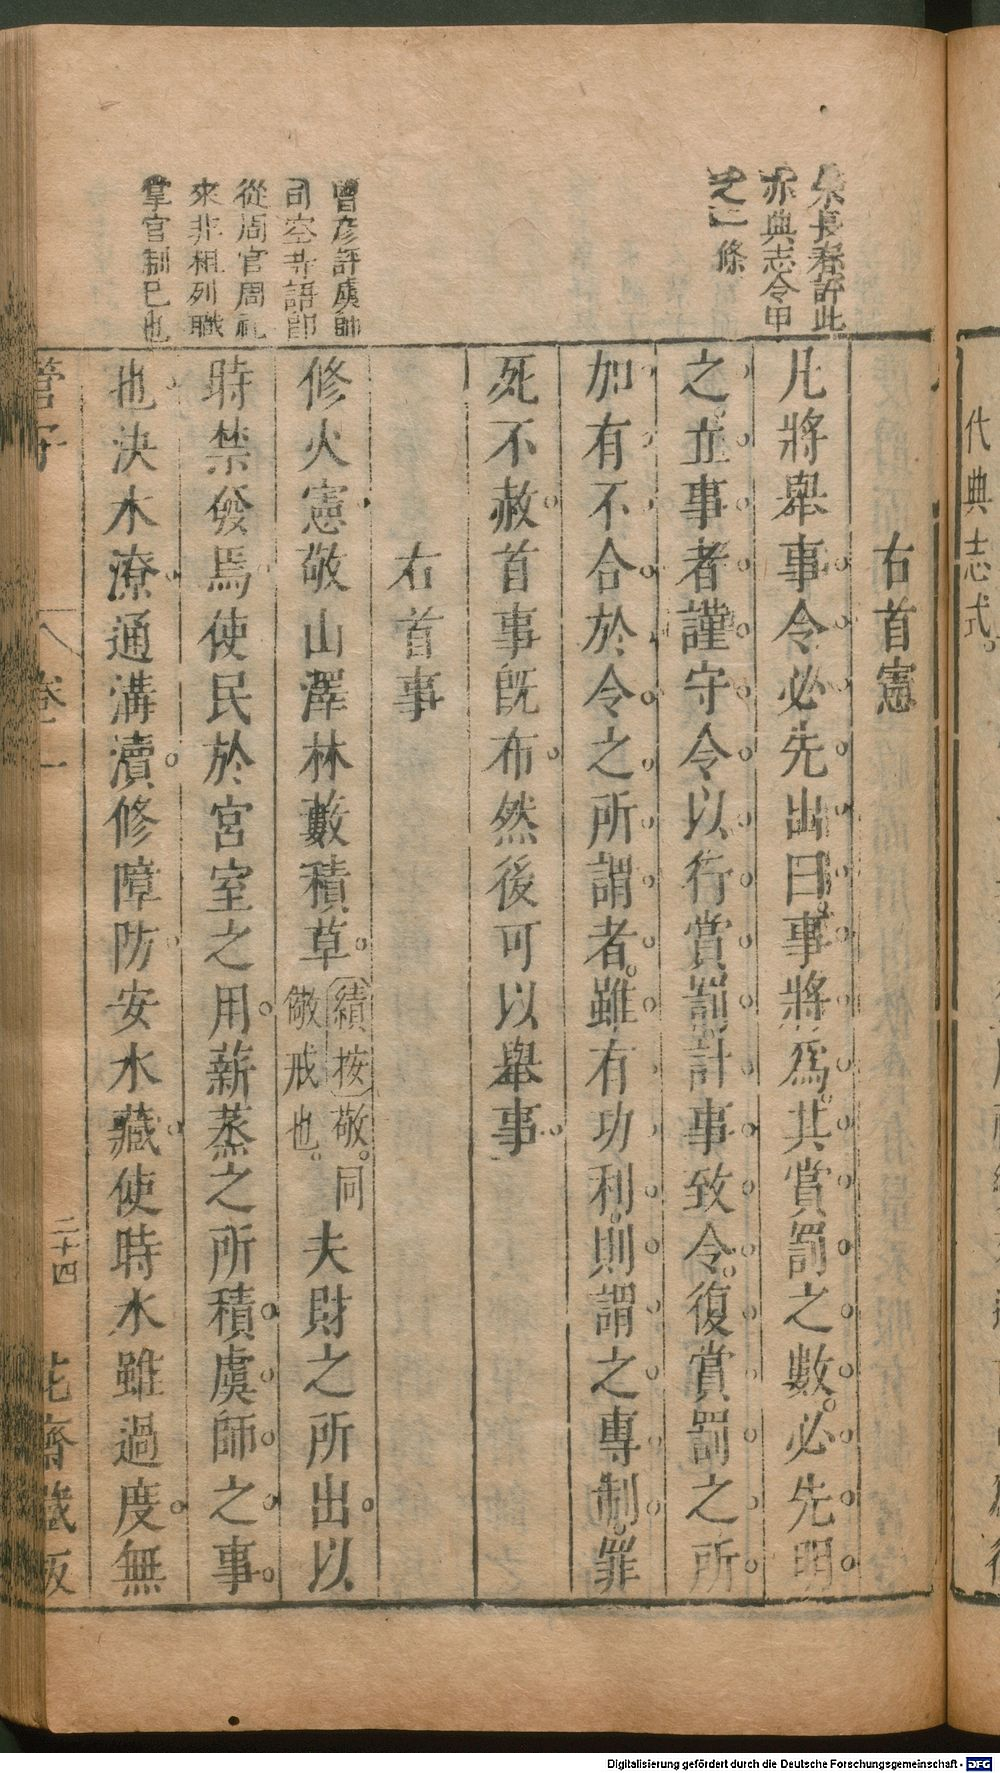 代典志式。
朱長春評此
亦典志令甲
之一條
右首憲
凡將舉事令必先出曰。事將爲。其賞罰之數。必先明
之。立事者謹守令以行賞罰計事致令。復賞罰之所
加有不合於令之所謂者。雖有功利。則謂之專制。罪
死不赦首事旣布然後可以舉事
右首事
曾彥評虞師
司空等語卽
從周官周禮
來非相列職
掌官制已也
修火憲敬山澤林藪積草績按敬。同儆戒也。夫財之所出以
時禁發焉使民於宮室之用薪蒸之所積虞師之事
也決水潦通溝瀆修障防安水藏使時水雖過度無
管子 卷一 二十四 花齋藏板
Digitalisierung gefördert durch die Deutsche Forschungsgemeinschaft - DFG